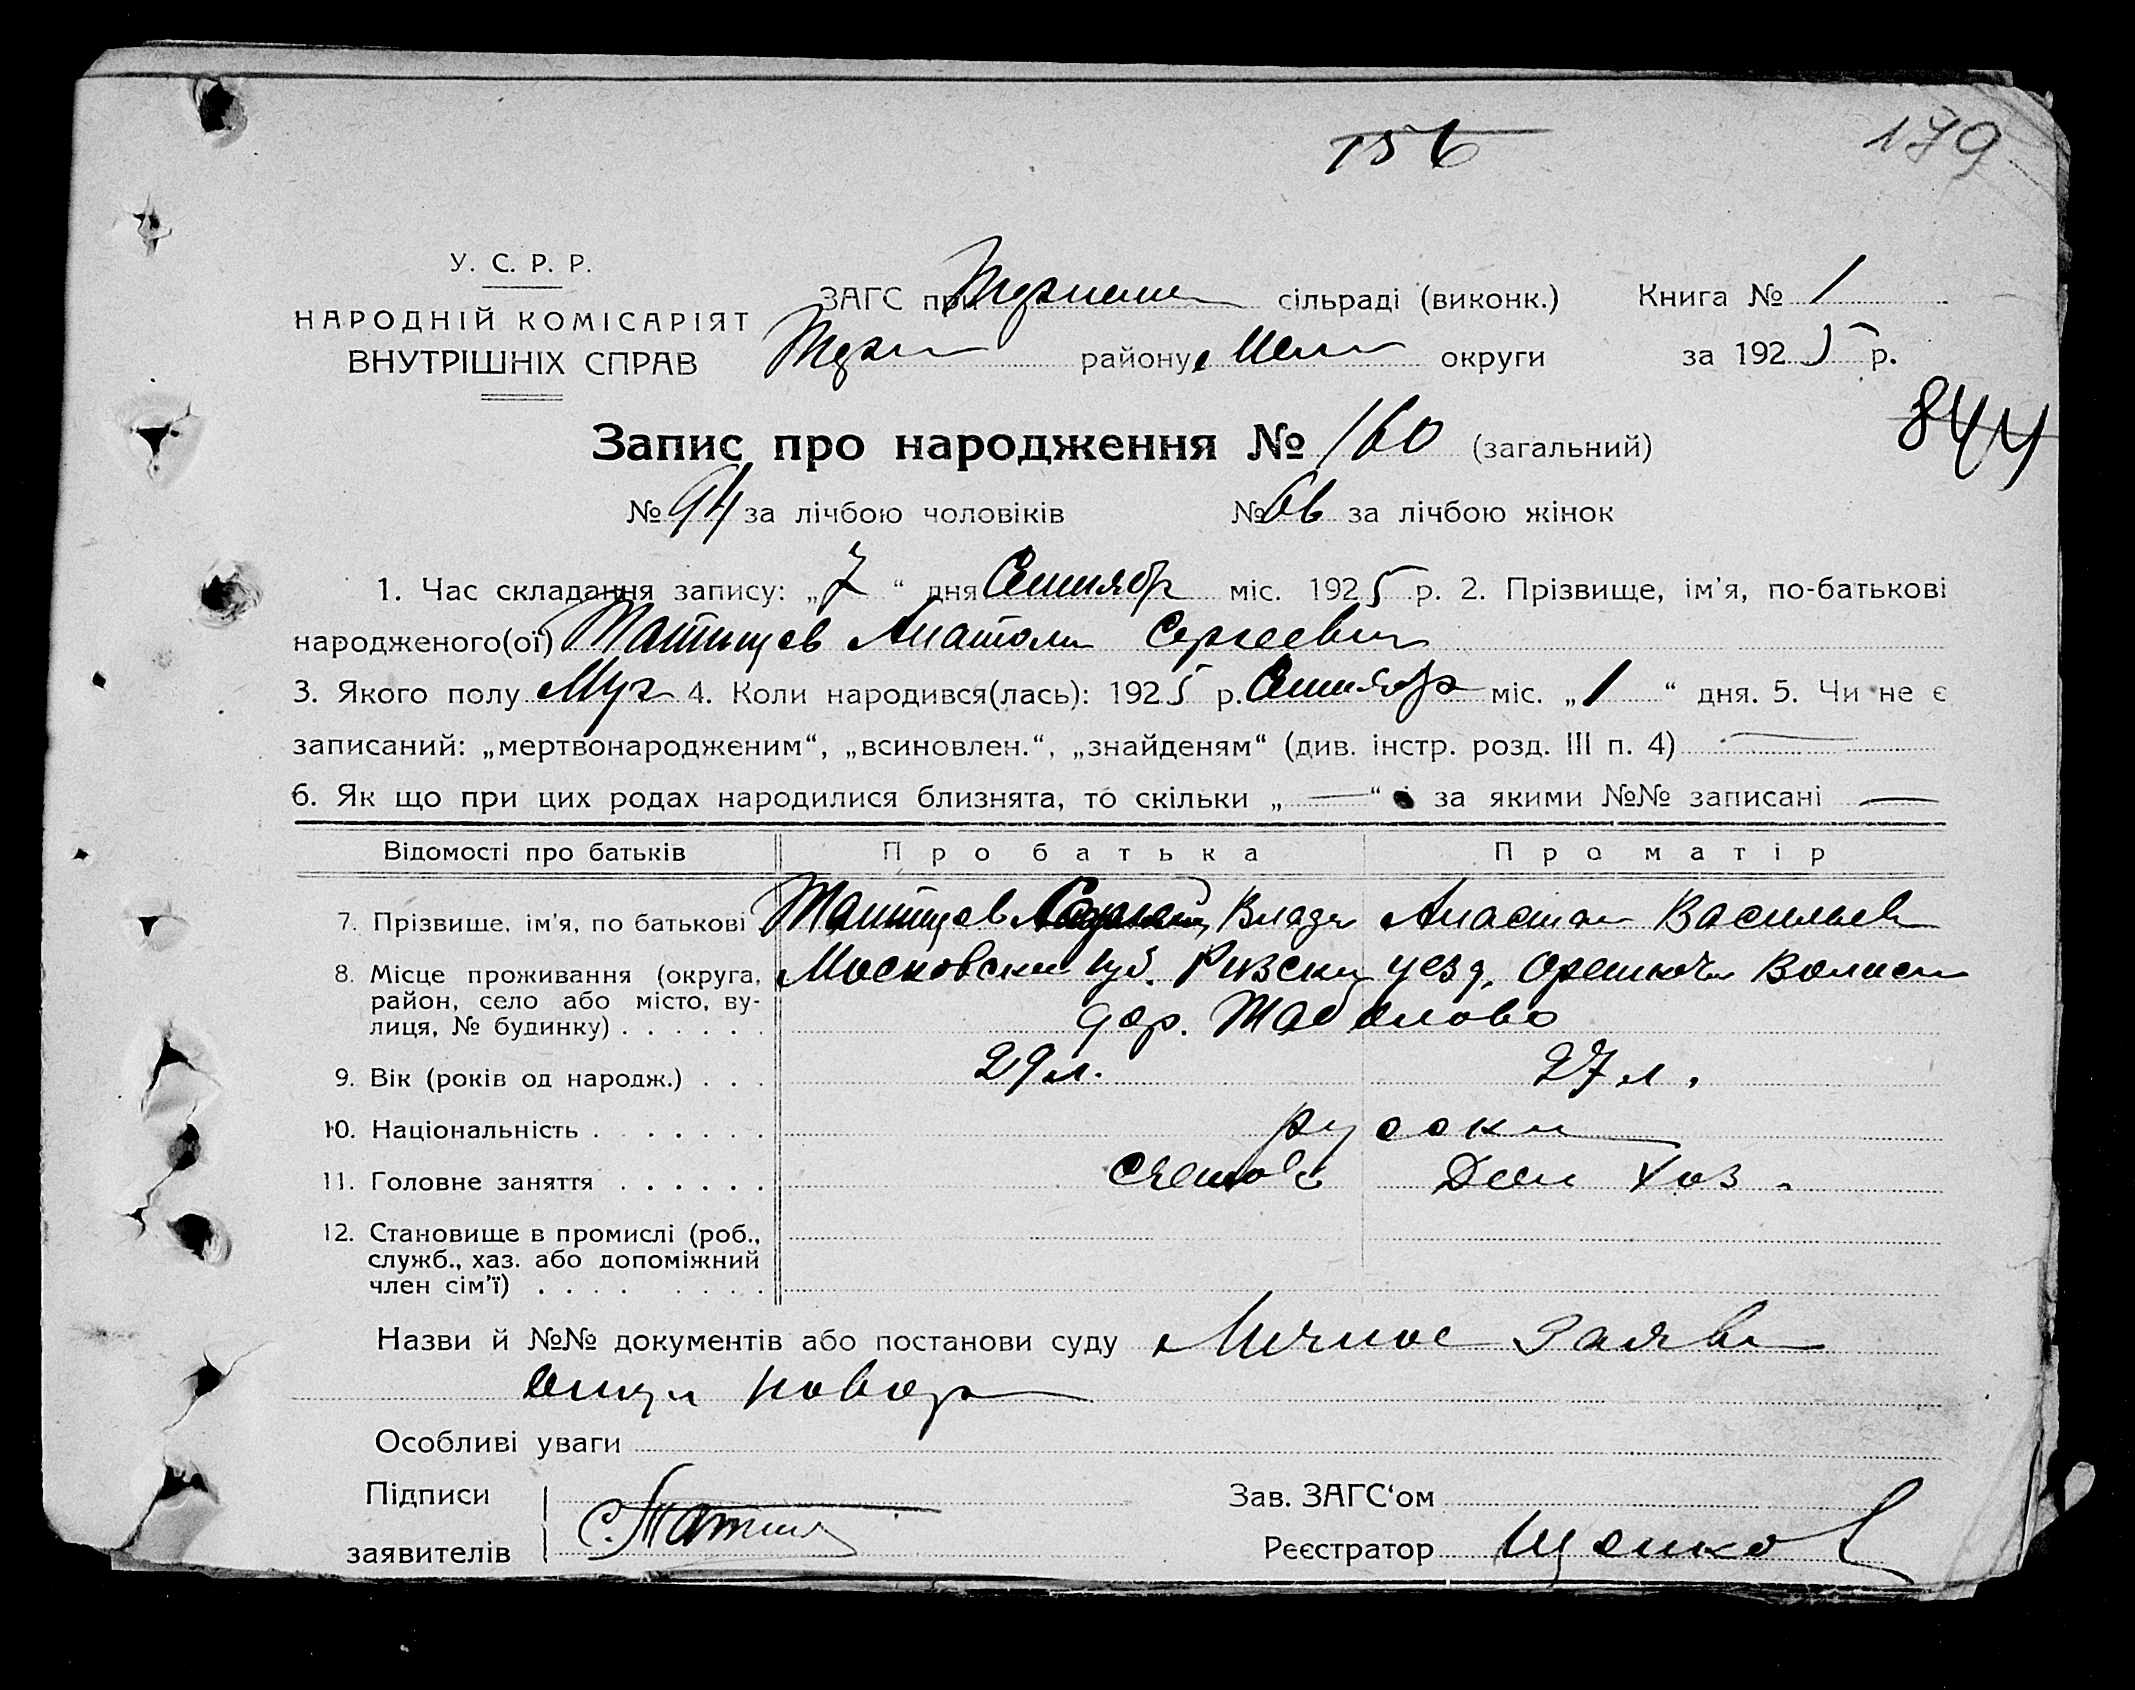 156
179
У. С. Р. Р.
НАРОДНІЙ КОМІСАРІЯТ
ВНУТРІШНІХ СПРАВ
ЗАГС при сільраді (виконк.) Книга № 1
району округи за 1925 р.
844
Запис про народження № 160 (загальний)
№ 94 за лічбою чоловіків № 66 за лічбою жінок
1. Час складання запису: „7“ дня Сентябр міс. 1925 р. 2. Прізвище, ім'я, по-батькові
народженого(ої) Татищев Анатоли Сергеевич
3. Якого полу Муж 4. Коли народився(лась): 1925 р. Сентябр міс. „1“ дня. 5. Чи не є
записаний: „мертвонародженим“, „всиновлен.“, „знайденям“ (див. інстр. розд. III п. 4) —
6. Як що при цих родах народилися близнята, то скільки „—“ за якими №№ записані —
Відомості про батьків Про батька Про матір
7. Прізвище, ім'я, по батькові Татищев Влади Анастаси Васильев
8. Місце проживання (округа, район, село або місто, вулиця, № будинку) . . . . . . Московски губ. уезд,
дер.
9. Вік (років од народж.) . . . 29 л. 27 л.
10. Національність . . . . . . . русски
11. Головне заняття . . . . . . Дом Хоз.
12. Становище в промислі (роб.,
служб., хаз. або допоміжний
член сім'ї) . . . . . . . .
Назви й №№ документів або постанови суду Личное Заяв
Особливі уваги
Підписи
заявителів
Зав. ЗАГС'ом
Реєстратор